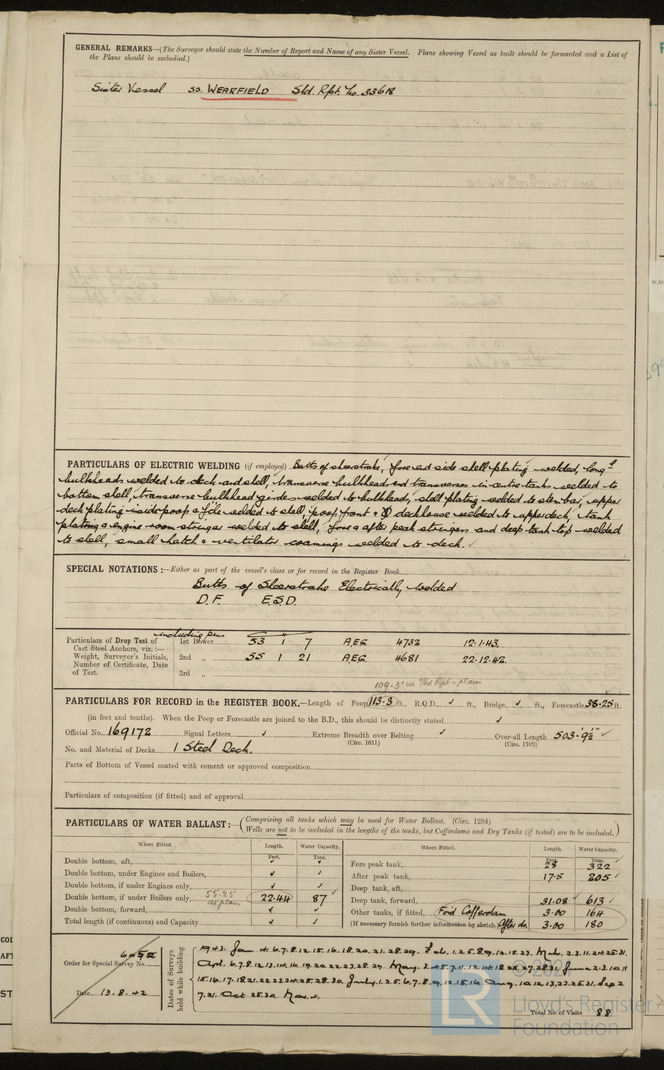 GENERAL REMARKS—(The Surveyor should state the Number of Report and Name of any Sister Vessel. Plans showing Vessel as built should be forwarded and a List of
the Plans should be embodied.)
Sister Vessel ss. WEARFIELD Sld. Rpt. No. 33618
PARTICULARS OF ELECTRIC WELDING (if employed) Butts of sheerstrake, fore end side shell plating welded, longl
bulkheads welded to deck and shell, transverse bulkheads and transverses in centre tank welded to
bottom shell, transverse bulkhead girders welded to bulkheads, shell plating welded to stem bar, upper
deck plating inside poop & f'cle welded to shell, poop front & deckhouse welded to upper deck, tank
plating & engine room stringer welded to shell, fore & after peak stringers and deep tank top welded
to shell, small hatch & ventilator coamings welded to deck.
SPECIAL NOTATIONS:—Either as part of the vessel's class or for record in the Register Book
Butts of Sheerstrake Electrically welded
D.F. E.S.D.
including pins
Particulars of Drop Test of 1st Bower 53 1 7 A.E.G. 4732 12.1.43.
Cast Steel Anchors, viz.:—
Weight, Surveyor's Initials, 2nd „ 55 1 21 A.E.G. 4681 22.12.42.
Number of Certificate, Date
of Test. 3rd „
PARTICULARS FOR RECORD in the REGISTER BOOK.—Length of Poop 113.3 ft., R.Q.D. ✓ ft., Bridge ✓ ft., Forecastle 38.25 ft.
(in feet and tenths). When the Poop or Forecastle are joined to the B.D., this should be distinctly stated ✓
Official No. 169172 Signal Letters ✓ Extreme Breadth over Belting ✓ Over-all Length 503'-9½"
(Circ. 1611) (Circ. 1703)
No. and Material of Decks 1 Steel Deck.
Parts of Bottom of Vessel coated with cement or approved composition
Particulars of composition (if fitted) and of approval
PARTICULARS OF WATER BALLAST:—(Comprising all tanks which may be used for Water Ballast. (Circ. 1284)
Wells are not to be included in the lengths of the tanks, but Cofferdams and Dry Tanks (if tested) are to be included.)
Where Fitted. Length. Water Capacity. Where Fitted. Length. Water Capacity.
Feet. Tons. Feet. Tons.
Double bottom, aft, ✓ ✓ Fore peak tank, 28 322
Double bottom, under Engines and Boilers, ✓ ✓ After peak tank, 17.5 205
Double bottom, if under Engines only, ✓ ✓ Deep tank, aft,
Double bottom, if under Boilers only, 22.44 87 Deep tank, forward, 31.08 613
Double bottom, forward, ✓ ✓ Other tanks, if fitted, For'd Cofferdam 3.00 164
Total length (if continuous) and Capacity ✓ ✓ (If necessary furnish further information by sketch) After do. 3.00 180
Order for Special Survey No.
Date 13.8.42
Dates of Surveys held while building
1943. Jan 4.6.7.8.12.15.16.18.20.21.28.29. Feb. 1.2.5.8.9.12.15.23. Mch. 2.3.11.24.25.31.
Total No. of Visits 88
© 2021
LR
Lloyd's Register
Foundation